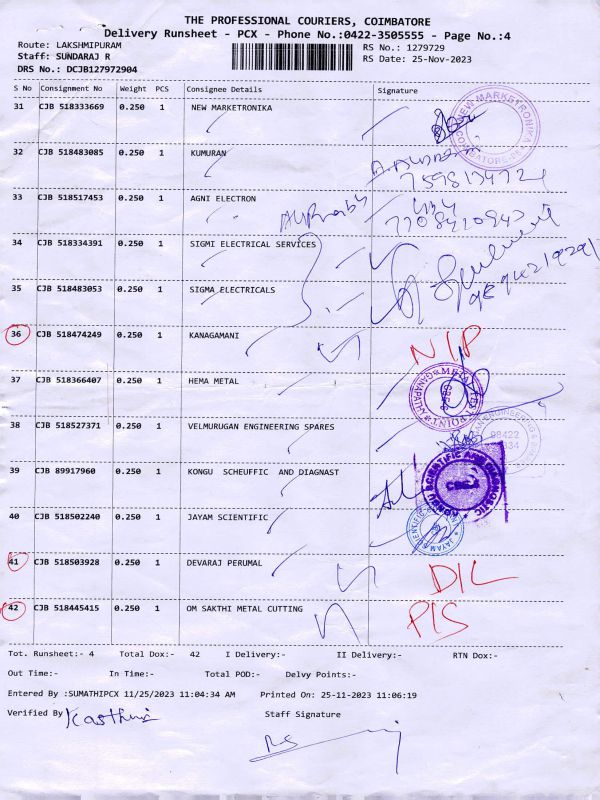 THE PROFESSIONAL COURIERS, COIMBATORE
Delivery Runsheet - PCX - Phone No.:0422-3505555 - Page No.:4
Route: LAKSHMIPURAM RS No.: 1279729
Staff: SUNDARAJ R RS Date: 25-Nov-2023
DRS No.: DCJB127972904
S No Consignment No Weight PCS Consignee Details Signature
31 CJB 518333669 0.250 1 NEW MARKETRONIKA
NEW MARKETRONIKA
32 CJB 518483085 0.250 1 KUMURAN
33 CJB 518517453 0.250 1 AGNI ELECTRON
34 CJB 518334391 0.250 1 SIGMI ELECTRICAL SERVICES
35 CJB 518483053 0.250 1 SIGMA ELECTRICALS
36 CJB 518474249 0.250 1 KANAGAMANI N/P
37 CJB 518366407 0.250 1 HEMA METAL
38 CJB 518527371 0.250 1 VELMURUGAN ENGINEERING SPARES
39 CJB 89917960 0.250 1 KONGU SCHEUFFIC AND DIAGNAST
KONGU SCIENTIFIC AND DIAGNOSTIC
40 CJB 518502240 0.250 1 JAYAM SCIENTIFIC
41 CJB 518503928 0.250 1 DEVARAJ PERUMAL D/L
42 CJB 518445415 0.250 1 OM SAKTHI METAL CUTTING P/S
Tot. Runsheet:- 4 Total Dox:- 42 I Delivery:- II Delivery:- RTN Dox:-
Out Time:- In Time:- Total POD:- Delvy Points:-
Entered By :SUMATHIPCX 11/25/2023 11:04:34 AM Printed On: 25-11-2023 11:06:19
Verified By Kasthuri Staff Signature